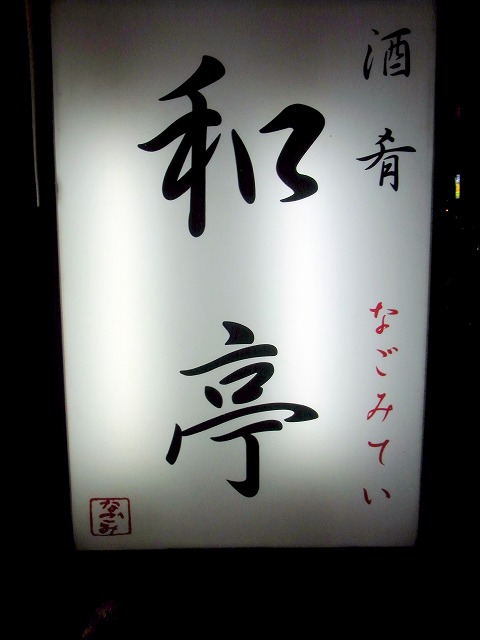 酒肴
和亭
なごみてい
なごみ